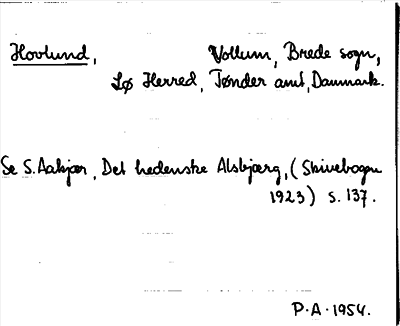 Hovlund, Vollum, Brede sogn,
Lø Herred, Tønder amt, Danmark.
Se S. Aakjær, Det hedenske Alsbjærg, (Skivebogen
1923) s. 137.
P.A. 1954.